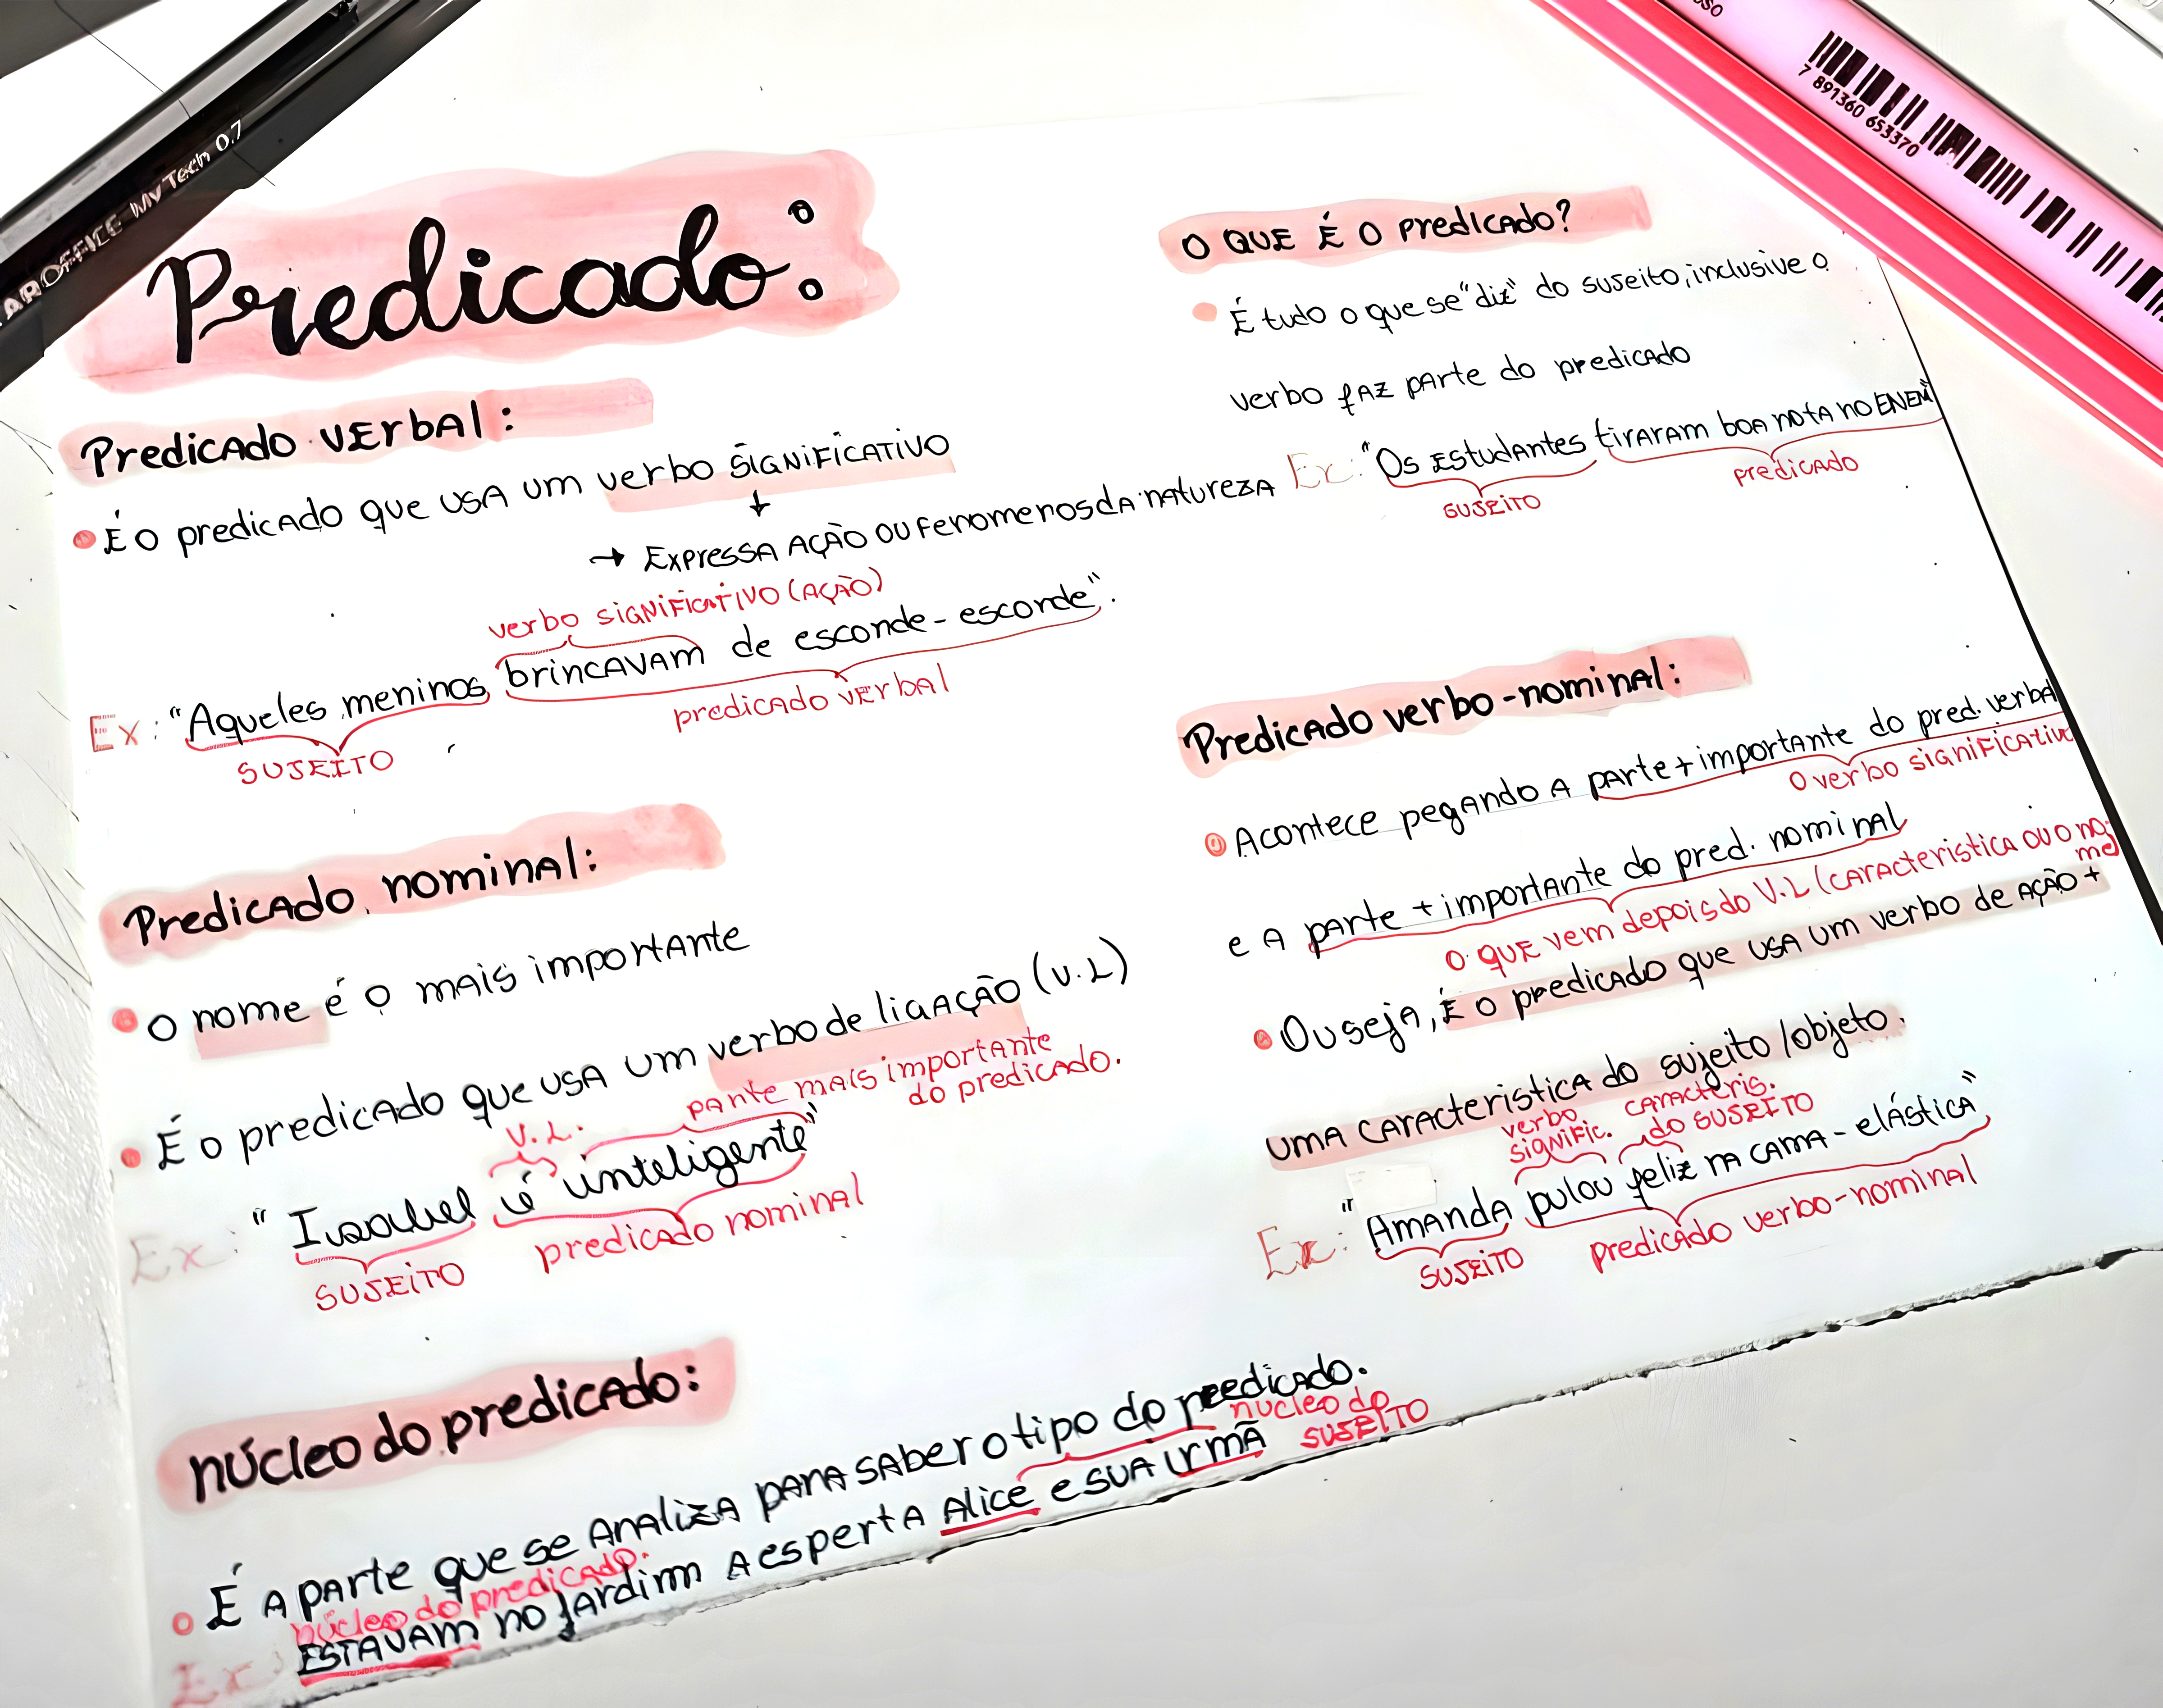 AROFFICE My Tech 0.7
7 891360 653370
Predicado:
O QUE É O predicado?
É tudo o que se "diz" do sujeito, inclusive o
verbo faz parte do predicado
Ex: "Os Estudantes tiraram boa nota no ENEM"
sujeito
predicado
Predicado verbal:
É o predicado que usa um verbo significativo
→ Expressa ação ou fenomenos da natureza
verbo significativo (ação)
Ex: "Aqueles meninos brincavam de esconde-esconde".
sujeito
predicado verbal
Predicado nominal:
O nome é o mais importante
É o predicado que usa um verbo de ligação (V.L)
parte mais importante
do predicado.
V.L.
Ex: "Isabel é inteligente"
sujeito
predicado nominal
Predicado verbo-nominal:
Acontece pegando a parte + importante do pred. verbal
o verbo significativo
e a parte + importante do pred. nominal
o que vem depois do V.L (caracteristica ou o no-
me)
Ou seja, É o predicado que usa um verbo de ação +
uma caracteristica do sujeito/objeto.
verbo
signific.
caracteris.
do sujeito
Ex: "Amanda pulou feliz na cama-elástica"
sujeito
predicado verbo-nominal
núcleo do predicado:
É a parte que se analiza para saber o tipo do predicado.
núcleo do predicado.
núcleo do
sujeito
Ex: Estavam no jardim a esperta Alice e sua irmã